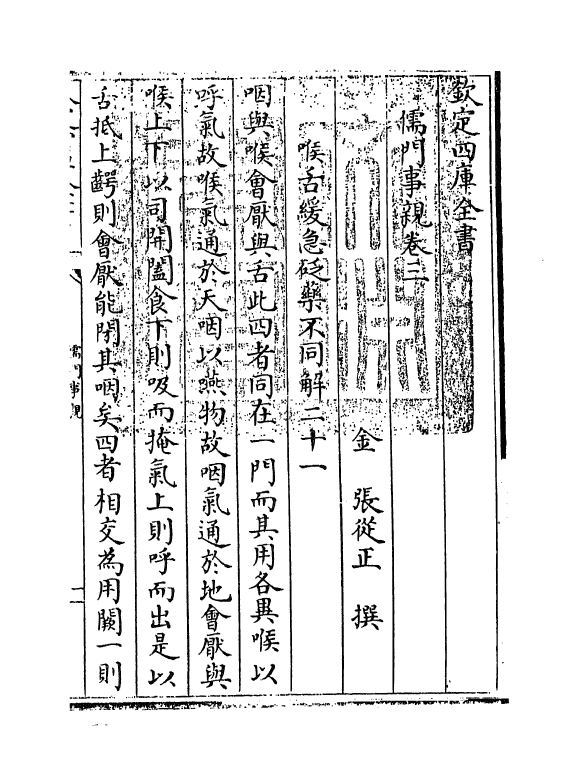 欽定四庫全書
儒門事親卷三
金 張從正 撰
喉舌緩急砭藥不同解二十一
咽與喉會厭與舌此四者同在一門而其用各異喉以
呼氣故喉氣通於天咽以嚥物故咽氣通於地會厭與
喉上下以司開闔食下則吸而掩氣上則呼而出是以
舌抵上齶則會厭能閉其咽矣四者相交為用闕一則
儒門事親